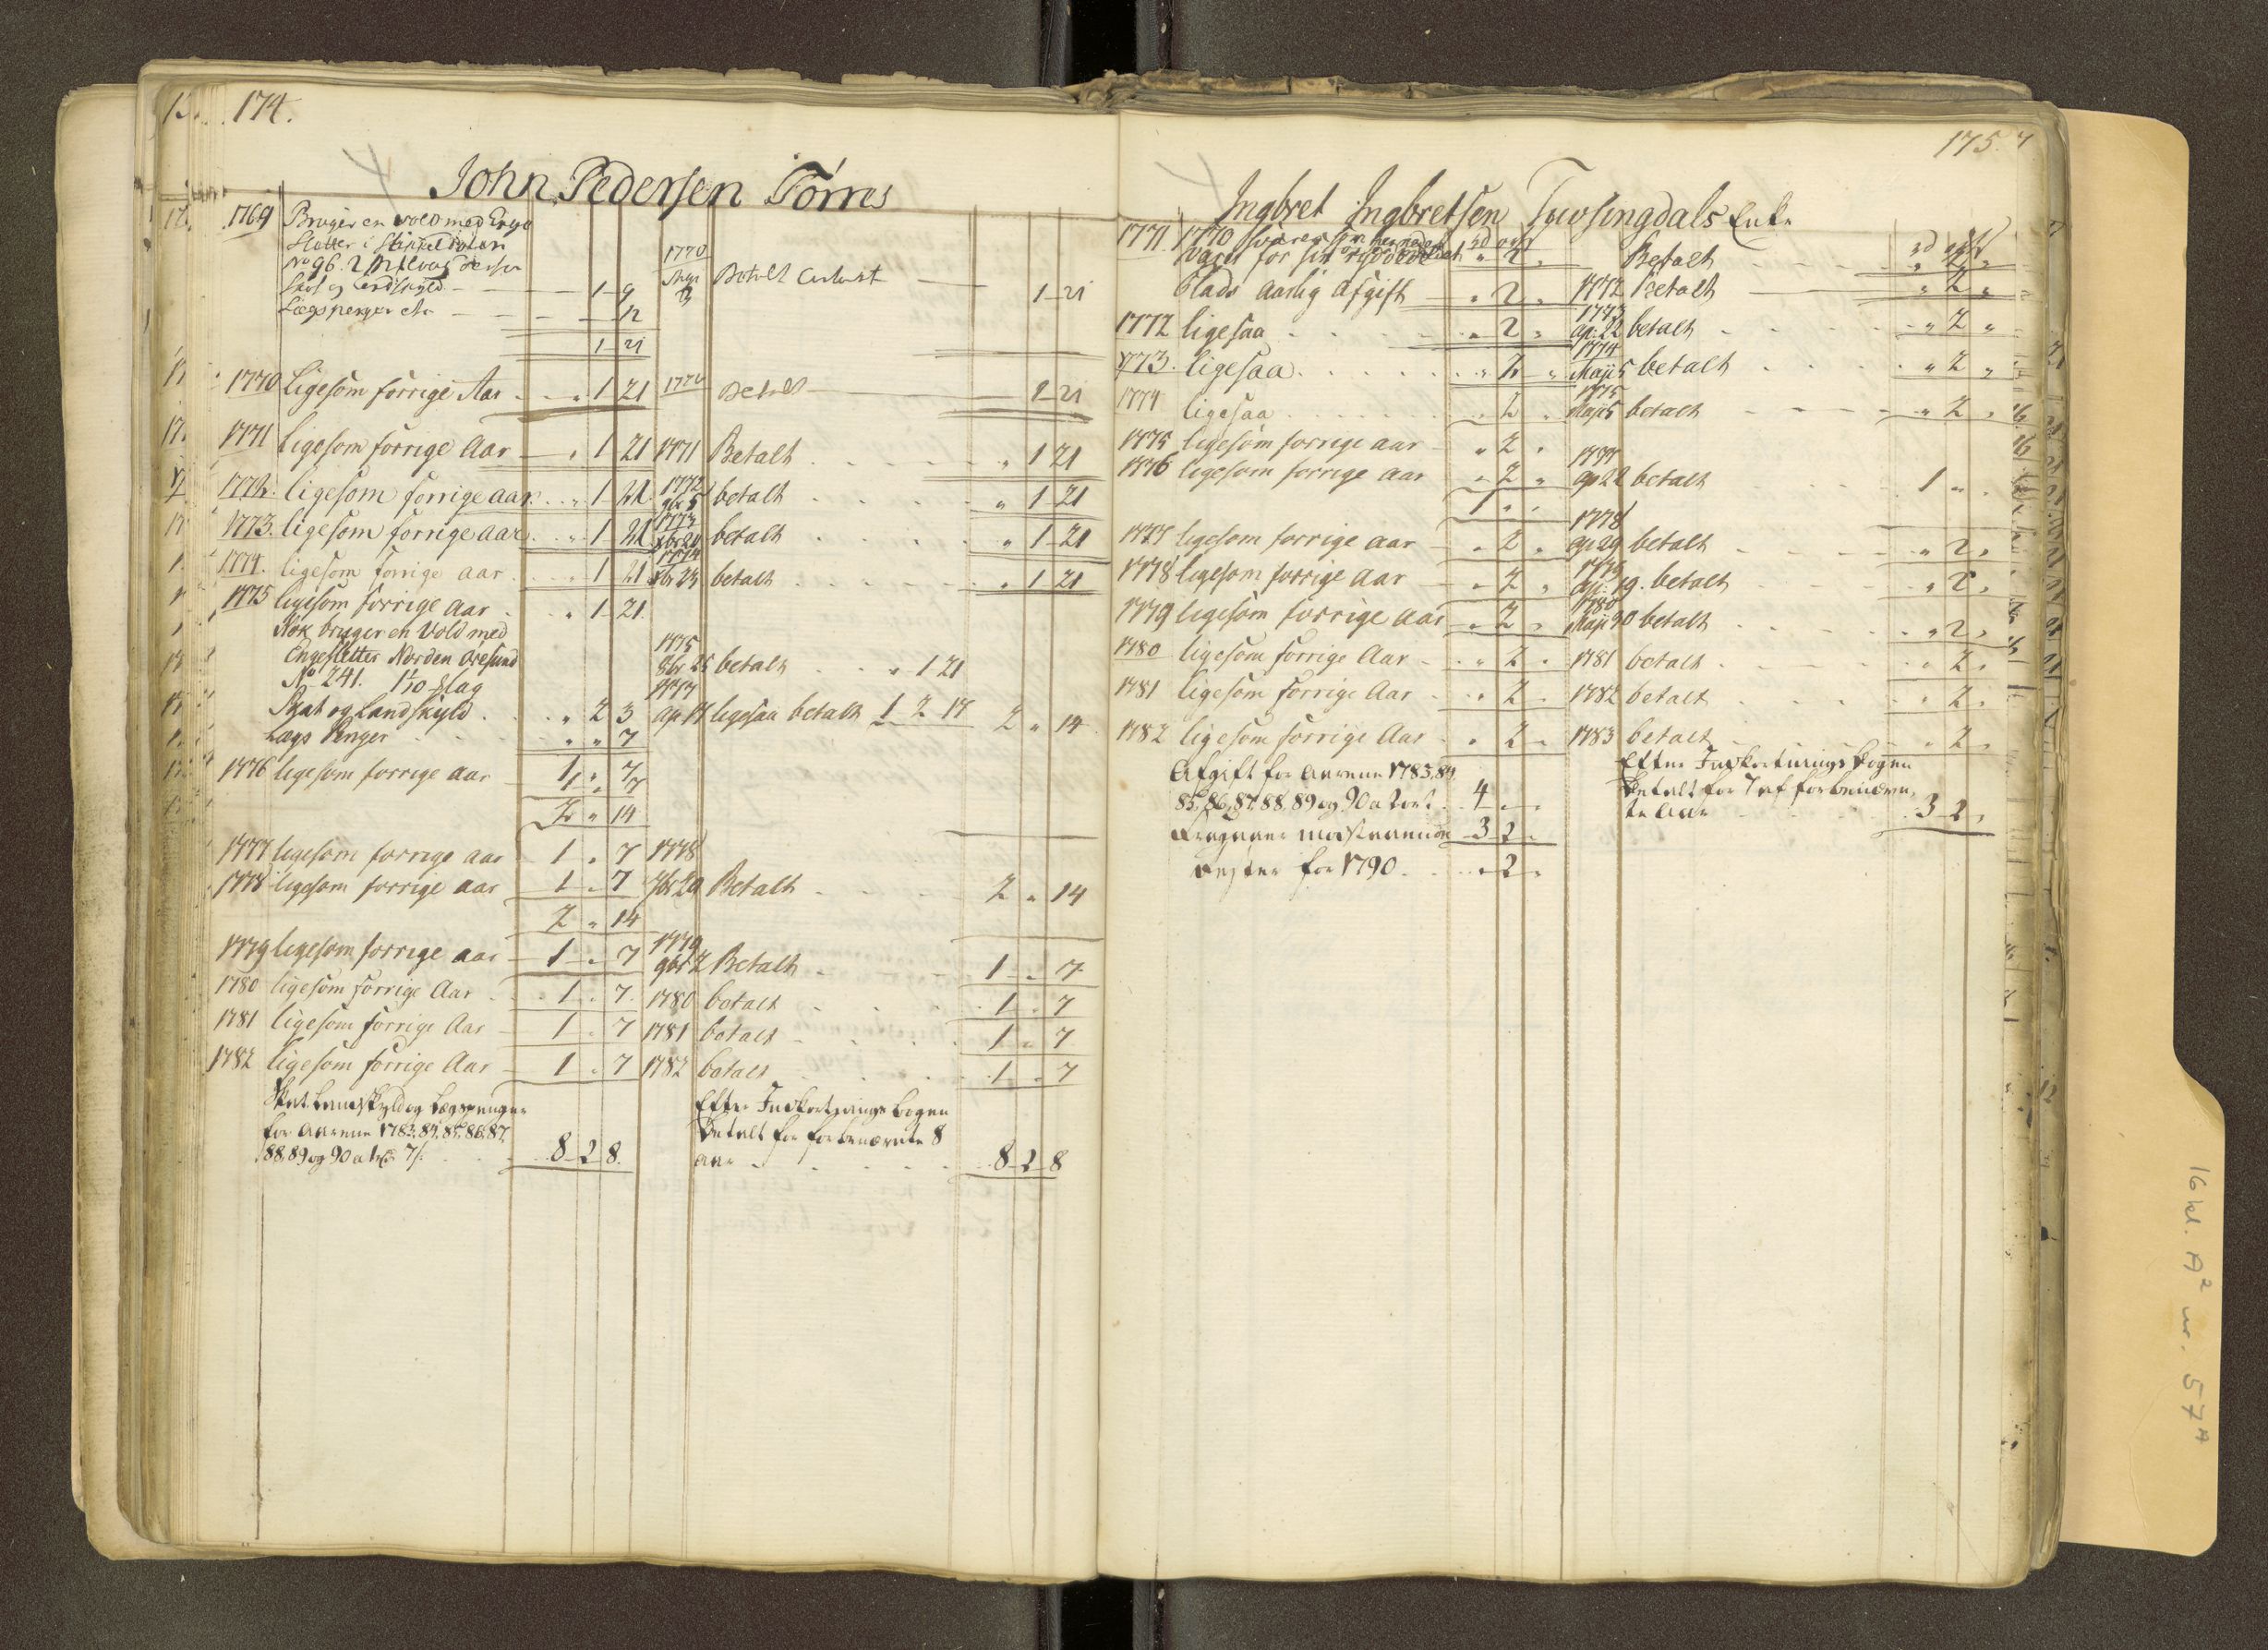 174.
John Pedersen Tørres
1769 Bruger en Vold med Enge
Sletter i
No 96. 2
Skat og Landskyld 1 9
Lægspenger 12
1 21
1770 Betalt 1 21
1770 Ligesom forrige Aar 1 21 1770 Betalt 1 21
1771 Ligesom forrige Aar 1 21 1771 Betalt 1 21
1772. ligesom forrige aar 1 21 1772 9br 5 betalt 1 21
1773. ligesom forrige aar 1 21 1773 betalt 1 21
1774. ligesom forrige aar 1 21 1774 8br 23 betalt 1 21
1775 ligesom forrige aar 1 21
Nok bruger en Vold med
Engesletter Norden Oresund
No 241. 1 1/10 Slag 1775 8br 25 betalt 1 21
Skat og Landskyld 2 3 1777 ap 18 ligesaa betalt 1 2 17 2 " 14
Lægs Penger " " 7
1776 ligesom forrige aar 1 " 7
1 " 7
2 " 14
1777 ligesom forrige aar 1 " 7 1778
1778 ligesom forrige aar 1 " 7 7br 20 Betalt 2 " 14
2 " 14
1779 ligesom forrige aar 1 " 7 1779 9br 2 Betalt 1 " 7
1780 ligesom forrige Aar 1 " 7 1780 betalt 1 " 7
1781 ligesom forrige Aar 1 " 7 1781 betalt 1 " 7
1782 ligesom forrige Aar 1 " 7 1782 betalt 1 " 7
Skat Landskyld og Lægspenger
for Aarene 1783, 84, 85, 86, 87,
88, 89 og 90 a 1 rd 7 s 8 2 8
Efter Indkortnings bogen
betalt for forbenævnte 8
Aar 8 2 8
175.
Ingbret Ingbretsen Tuvsingdals Enke
1771 1770
for sit Rydde
Plads aarlig afgift " 2 "
Betalt " 2 "
1772 betalt " 2 "
1772 ligesaa " 2 " 1773 ap: 22 betalt " 2 "
1773. ligesaa " 2 " 1774 Maji 5 betalt " 2 "
1774 ligesaa " 2 " 1775 Maji 5 betalt " 2 "
1775 ligesom forrige aar " 2 "
1776 ligesom forrige aar " 2 " 1777 ap 22 betalt 1 " "
1 " "
1777 ligesom forrige aar " 2 " 1778 ap 29 betalt " 2 "
1778 ligesom forrige aar " 2 " 1779 ap: 19. betalt " 2 "
1779 ligesom forrige aar " 2 " 1780 Maji 30 betalt " 2 "
1780 ligesom forrige Aar " 2 " 1781 betalt " 2 "
1781 ligesom forrige Aar " 2 " 1782 betalt " 2 "
1782 ligesom forrige Aar " 2 " 1783 betalt " 2 "
Afgift for Aarene 1783, 84,
85, 86, 87, 88, 89 og 90 a 2 ort 4 " "
Fragaaer modstaaende 3 2 "
Rester for 1790 " 2 "
Efter Indkortnings bogen
Betalt for 7 af forbenævn-
te Aar 3 2 "
16 kl. A² nr. 57ᴬ